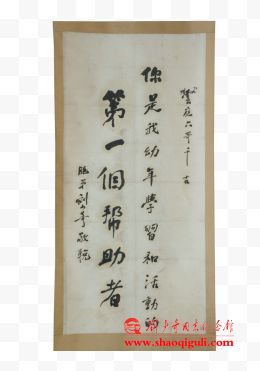 云庭六哥千古
你是我幼年學習和活動的
第一個幫助者
胞弟劉少奇敬輓
刘少奇同志纪念馆
www.shaoqiguli.com